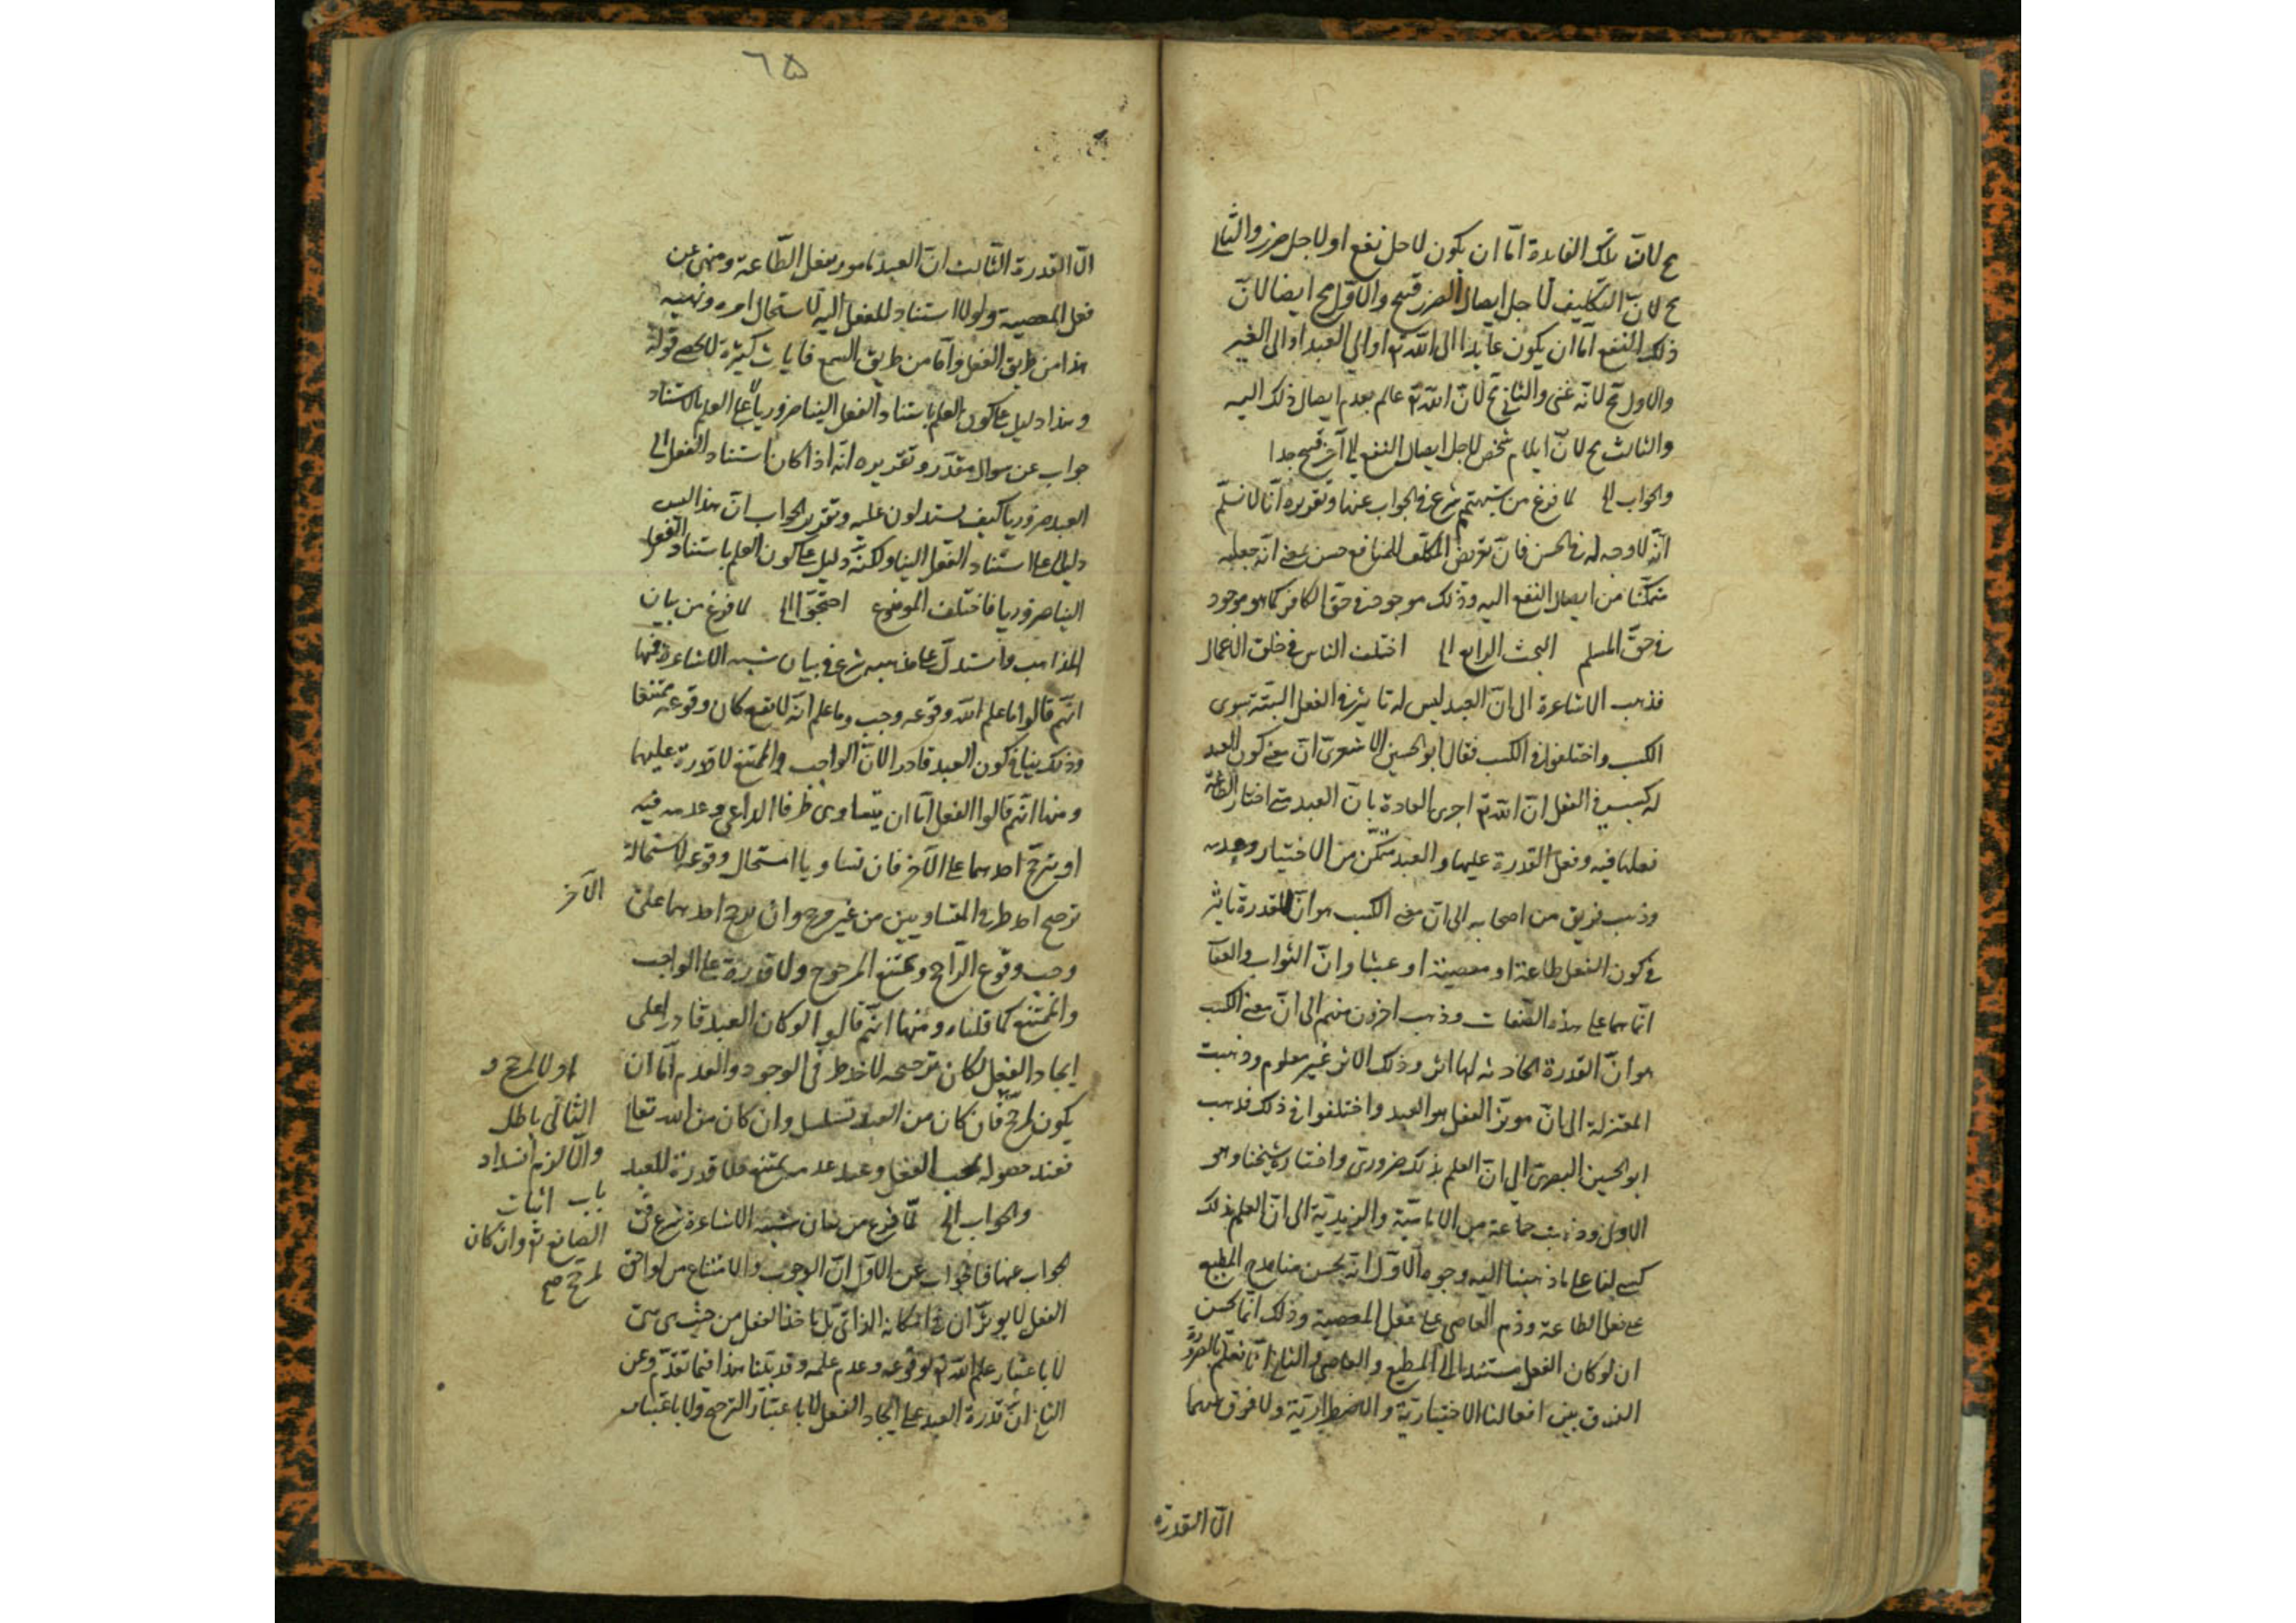 ح لان تلك الفائدة اما ان يكون لاجل نفع او لاجل ضرر والثانى
ح لان التكليف لاجل ايصال الضرر قبيح والاول مح ايضا لان
ذلك النفع اما ان يكون عايدا الى الله تع او الى العبد او الى الغير
والاول مح لانه غنى والثانى مح لان الله تع عالم بعدم ايصال ذلك اليه
والثالث مح لان ايلام شخص لاجل ايصال النفع الى آخر قبيح جدا
والجواب الى لما فرغ من شبهتهم شرع فى الجواب عنها وتقريره انا لا نسلم
انه لا وجه له فى الحسن فان تعريض المكلف للمنافع حسن بمعنى انه جعله
متمكنا من ايصال النفع اليه وذلك موجود فى حق الكافر كما هو موجود
فى حق المسلم البحث الرابع الى اختلف الناس فى خلق الاعمال
فذهب الاشاعرة الى ان العبد ليس له تاثير فى الفعل البتة سوى
الكسب واختلفوا فى الكسب فقال ابو الحسين الاشعرى ان معنى كون العبد
له كسب فى الفعل ان الله تع اجرى العادة بان العبد متى اختار الطاعة
فعلها فيه وفعل القدرة عليها والعبد متمكن من الاختيار وعدمه
وذهب فريق من اصحابه الى ان معنى الكسب هو ان للقدرة تاثير
فى كون الفعل طاعة او معصية او عبثا وان الثواب والعقاب
انما هما على هذه الصفات وذهب اخرون منهم الى ان معنى الكسب
هو ان القدرة الحادثة لها اثر وذلك الاثر غير معلوم وذهبت
المعتزلة الى ان موثر الفعل هو العبد واختلفوا فى ذلك فذهب
ابو الحسين البصرى الى ان العلم بذلك ضرورى واختاره شيخنا وهو
الاول وذهبت جماعة من الامامية والزيدية الى ان العلم بذلك
كسبى لنا على ما ذهبنا اليه وجوه الاول انه يحسن منا مدح المطيع
على فعل الطاعة وذم العاصى على فعل المعصية وذلك انما يحسن
ان لو كان الفعل مستندا الى المطيع والعاصى والثانى انا نعلم بالضرورة
الفرق بين افعالنا الاختيارية والاضطرارية ولا فرق بينهما
الا القدرة
٦٥
الا القدرة الثالث ان العبد مامور بفعل الطاعة ومنهى عن
فعل المعصية ولولا استناد للفعل اليه لاستحال امره ونهيه
هذا من طريق العقل واما من طريق السمع فآيات كثيرة لا تحصى قوله
وهذا دليل على كون العلم باستناد الفعل الينا ضروريا لا على العلم بالاستناد
جواب عن سوال مقدر وتقديره انه اذا كان استناد الفعل الى
العبد ضروريا كيف يستدلون عليه وتقرير الجواب ان هذا ليس
دليلا على استناد الفعل الينا ولكنه دليل على كون العلم باستناد الفعل
الينا ضروريا فاختلف الموضوع احتجوا الى لما فرغ من بيان
المذاهب واستدل على مذهبه شرع فى بيان شبه الاشاعرة فمنها
انهم قالوا ما علم الله وقوعه وجب وما علم انه لا يقع كان وقوعه ممتنعا
وذلك ينافى كون العبد قادرا لان الواجب والممتنع لا قدرة عليهما
ومنها انهم قالوا الفعل اما ان يتساوى طرفا الداعى وعدمه فيه
او يترجح احدهما على الآخر فان تساويا استحال وقوعه لاستحالة
ترجيح احد طرفى المتساويين من غير مرجح وان ترجح احدهما على
الآخر
وجب وقوع الراجح وامتنع المرجوح ولا قدرة على الواجب
والممتنع كما قلناه ومنها انهم قالوا لو كان العبد قادرا على
ايجاد الفعل لكان ترجيحه لاحد طرفى الوجود والعدم اما ان
يكون لمرجح فان كان من العبد تسلسل وان كان من الله تعالى
فعند حصوله يجب الفعل وعند عدمه يمتنع فلا قدرة للعبد
او لا لمرجح و
الثانى باطل
والا لزم انسداد
باب اثبات
الصانع تع وان كان
لمرجح صح
والجواب الى لما فرغ من بيان شبه الاشاعرة شرع فى
الجواب عنها فالجواب عن الاول ان الوجوب والامتناع من لواحق
الفعل لا يوثران فى امكانه الذاتى بل ياخذ الفعل من حيث هى هى
لا باعتبار علم الله تع بوقوعه وعدم علمه وقد بينا هذا فيما تقدم وعن
الثانى ان قدرة العبد على ايجاد الفعل لا باعتبار الترجيح ولا باعتبار